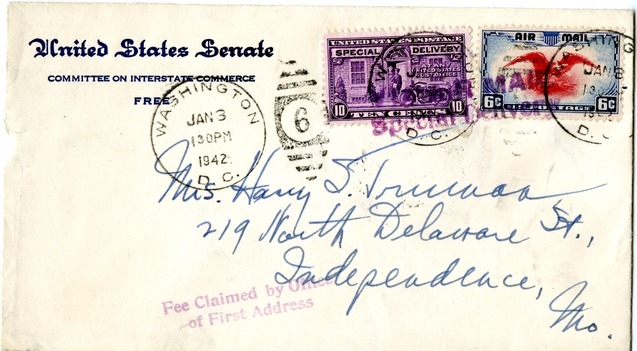 United States Senate
COMMITTEE ON INTERSTATE COMMERCE
FREE
UNITED STATES POSTAGE
SPECIAL DELIVERY
UNITED STATES
POST OFFICE
10 TEN CENTS 10
AIR MAIL
6¢ 6¢
WASHINGTON
JAN 3
130PM
1942
D. C.
6
JAN 3
D. C.
Special Delivery
Mrs. Harry S. Truman
219 North Delaware St.,
Independence,
Mo.
Fee Claimed by Office
of First Address